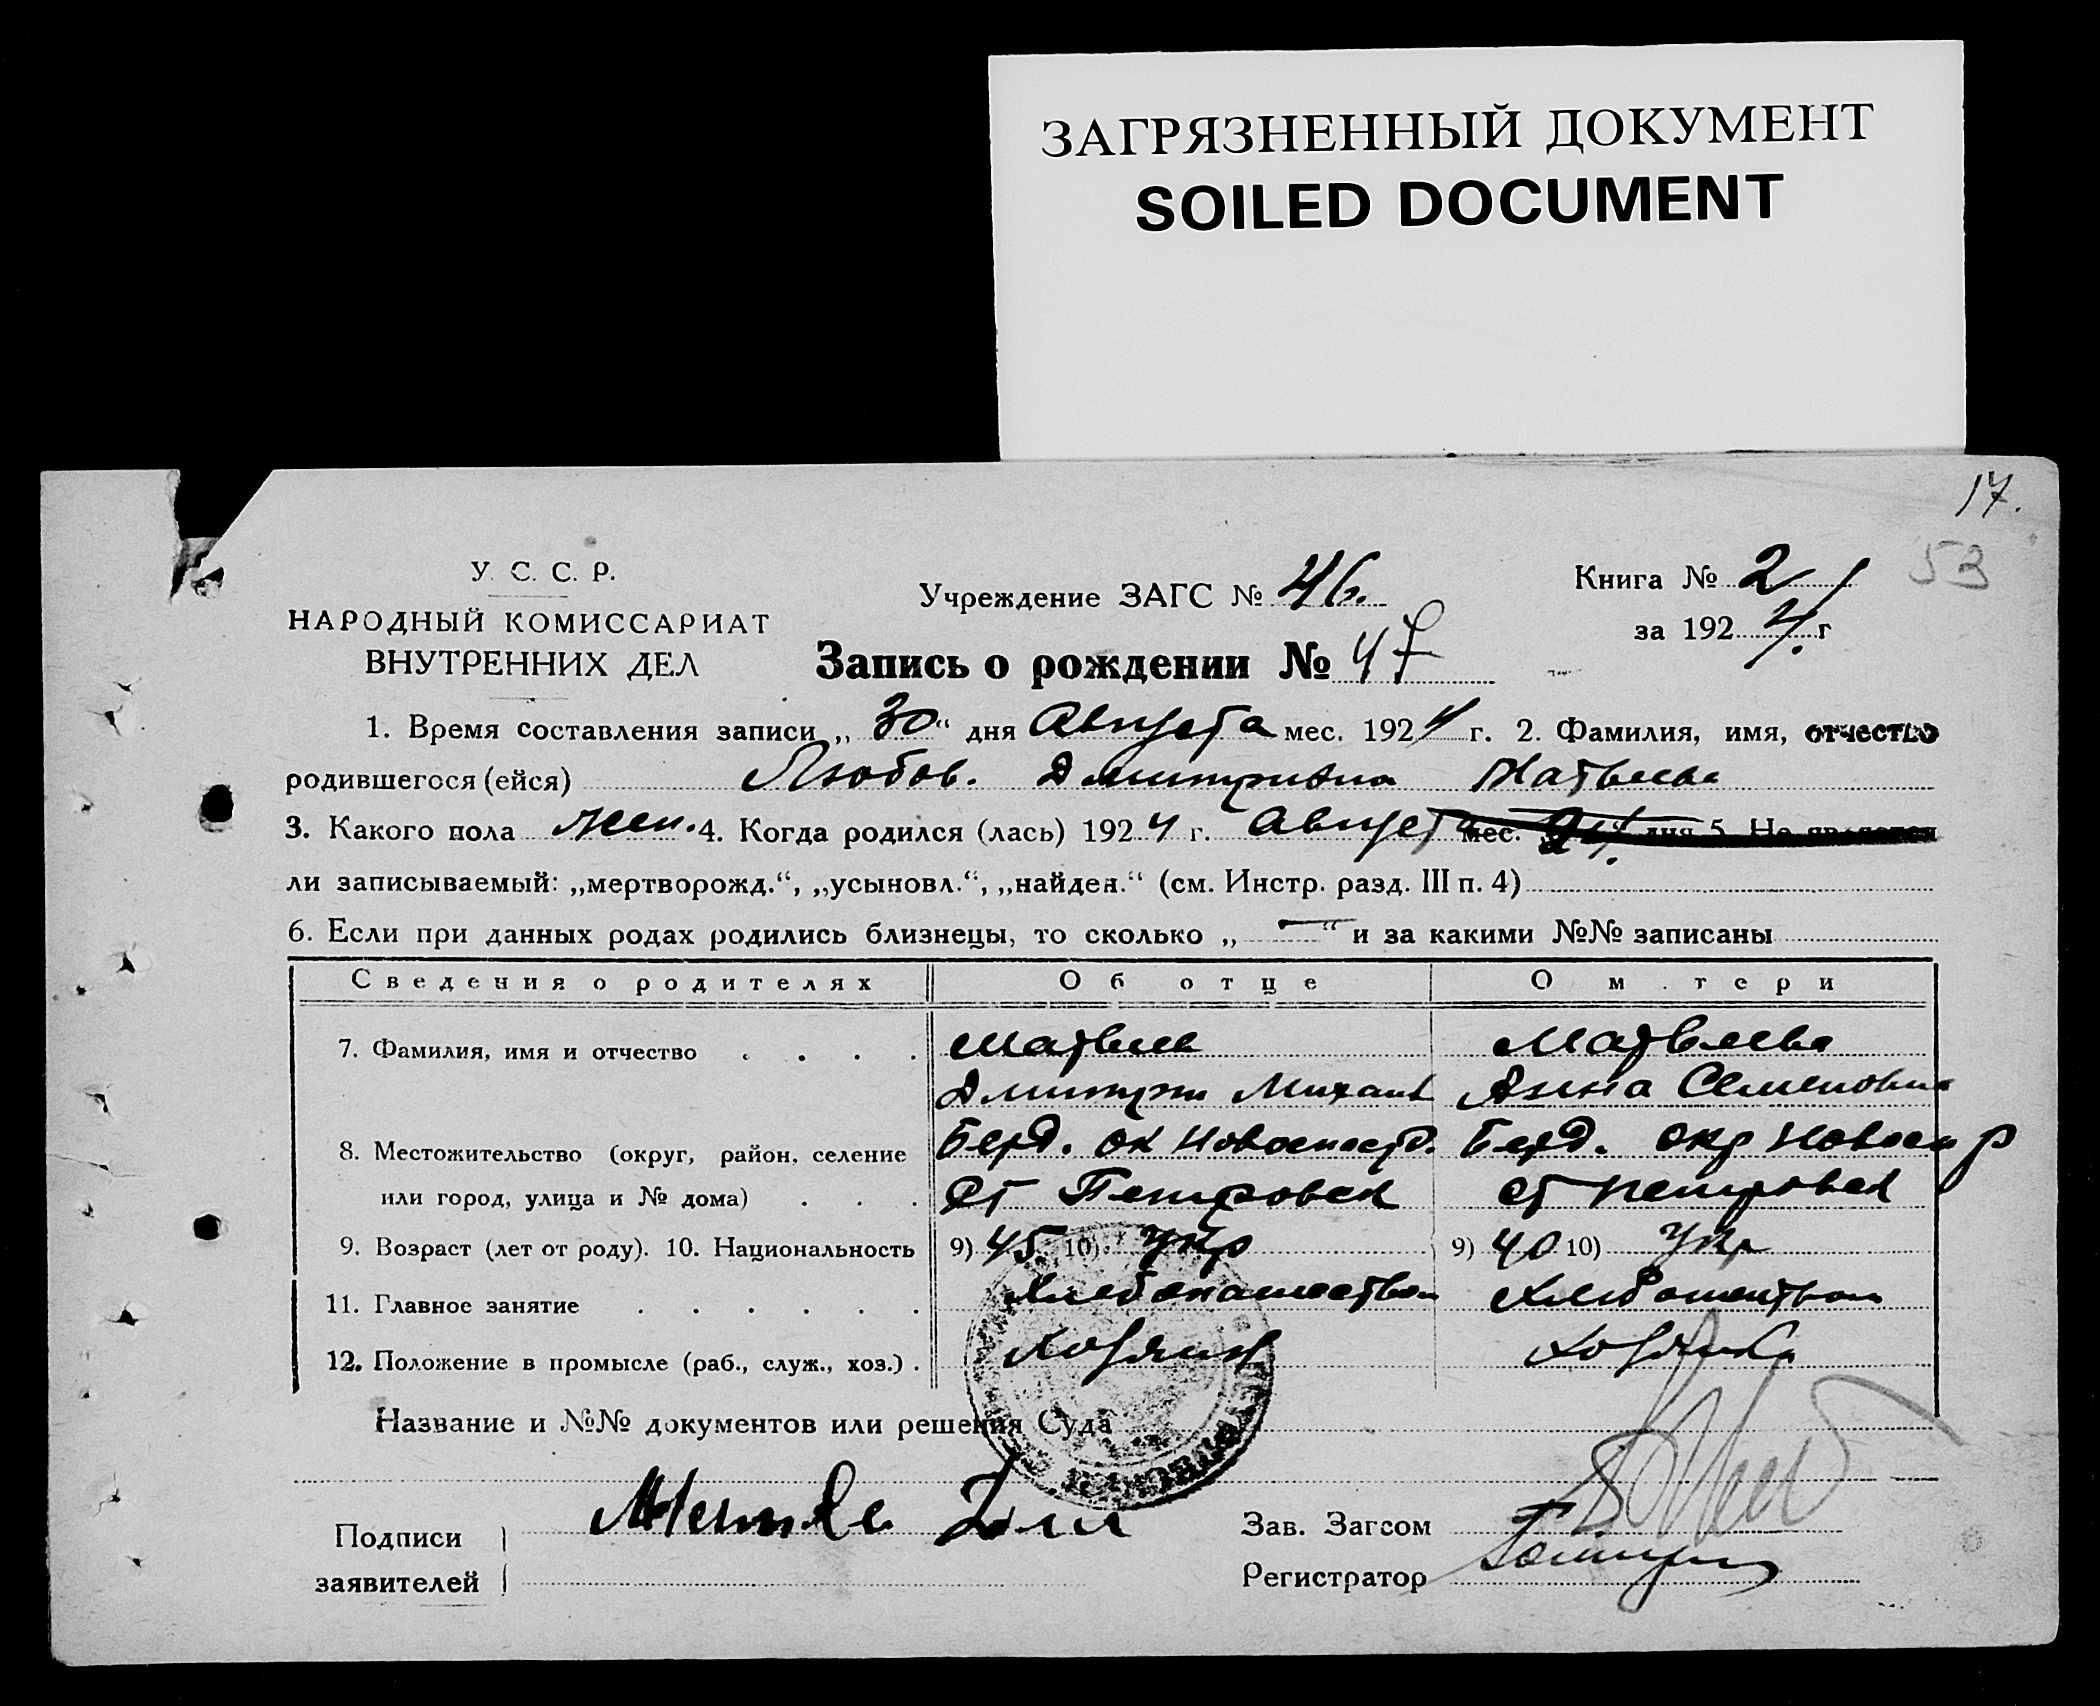 ЗАГРЯЗНЕННЫЙ ДОКУМЕНТ
SOILED DOCUMENT
17.
53
У. С. С. Р.
НАРОДНЫЙ КОМИССАРИАТ
ВНУТРЕННИХ ДЕЛ
Учреждение ЗАГС № 46.
Книга № 2
за 1924 г
Запись о рождении № 47
1. Время составления записи „ 30 “ дня Августа мес. 1924 г. 2. Фамилия, имя, отчество
родившегося (ейся) Любов. Дмитривна Матвеева
3. Какого пола жен. 4. Когда родился (лась) 1924 г. Августа мес. дня 5. Не является
ли записываемый: „мертворожд.“, „усыновл.“, „найден.“ (см. Инстр. разд. III п. 4)
6. Если при данных родах родились близнецы, то сколько „ — “ и за какими №№ записаны
Сведения о родителях Об отце О м тери
7. Фамилия, имя и отчество . . . . Матвеев Матвеева
Дмитри Михаил Анна Семеновна
8. Местожительство (округ, район, селение Берд. ок Новоспасов. Берд. окр
или город, улица и № дома) . . . ст Петровск ст Петровск
9. Возраст (лет от роду). 10. Национальность 9) 45. 10) Укр 9) 40 10) Укр
11. Главное занятие . . . . . . Хлебопашество
12. Положение в промысле (раб., служ., хоз.) . Хозяин Хозяйка
Название и №№ документов или решения Суда
Подписи
заявителей
Зав. Загсом
Регистратор